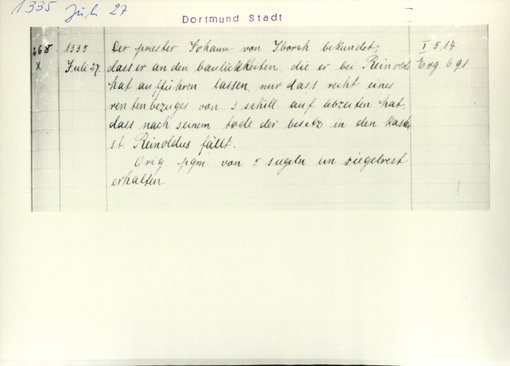 1335 Juli 27
Dortmund Stadt
268 1335 Der priester Johann von Iborch bekundet, I 5.14
X Juli 27. dass er an den baulichkeiten, die er bei Reinolds Erg 691
hat aufführen lassen, nur das recht eines
rentenbezuges von 3 schill auf lebzeiten hat,
dass nach seinem tode der besitz in den
st Reinoldus fällt.
Orig pgm von 5 siegeln ein siegelrest
erhalten.